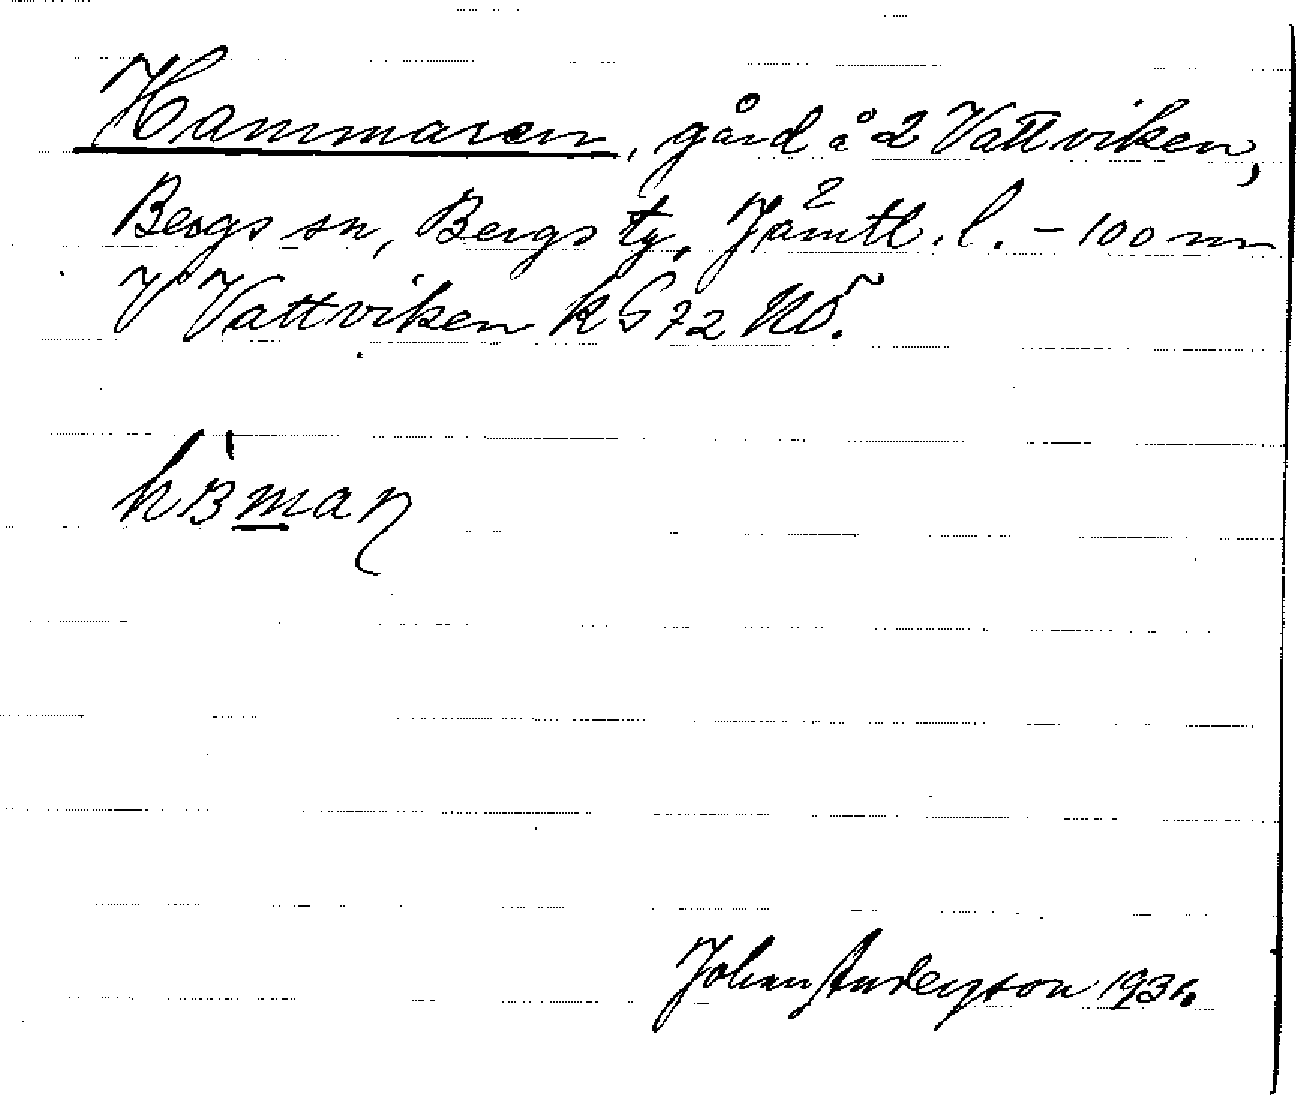 Hammaren, gård å 2 Vattviken,
Bergs sn, Bergs tg, Jämtl. l. – 100 m
V Vattviken k G 72 NÖ.
Johan Anderson 1931.